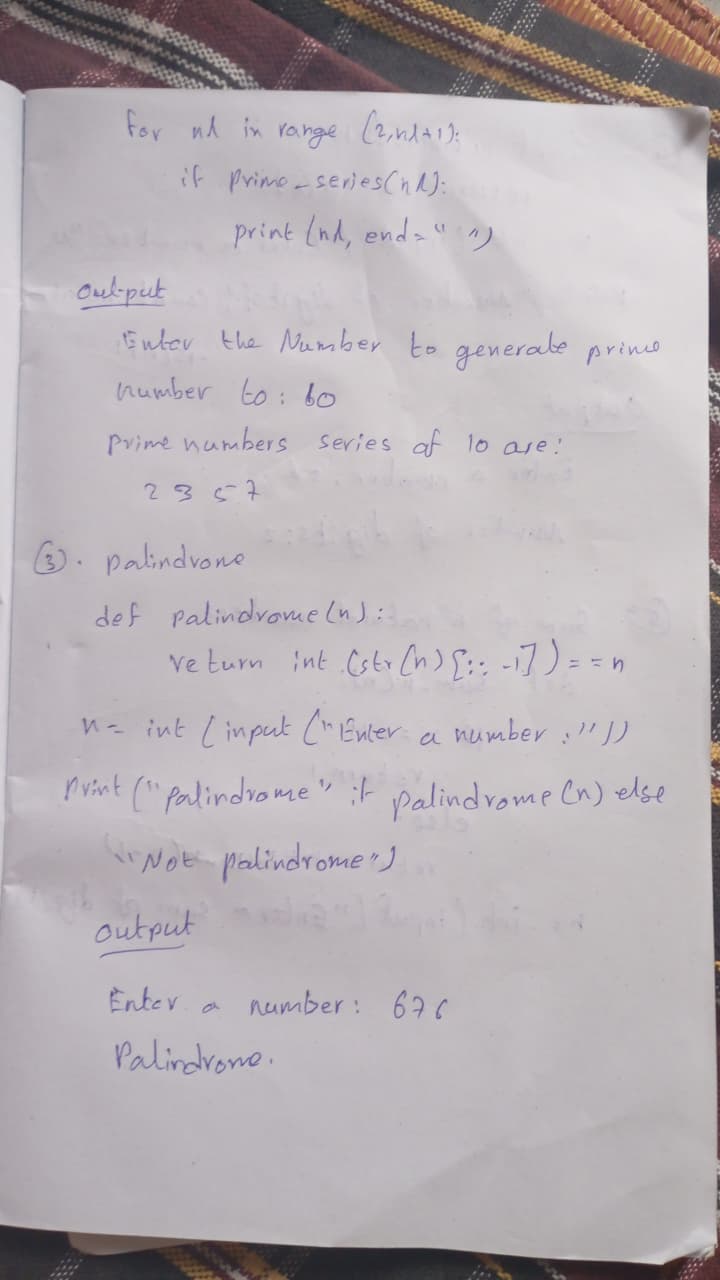 for n1 in range (2,n1+1):
if prime_series(n1):
print (n1, end=" ")
output
Enter the Number to generate prime
number to: 10
prime numbers series of 10 are:
2 3 5 7
(3). palindrone
def palindrome(n):
return int (str(n)[::-1])==n
n= int (input ("Enter a number :"))
print ("palindrome" if palindrome(n) else
"Not palindrome")
output
Enter a number: 676
Palindrone.